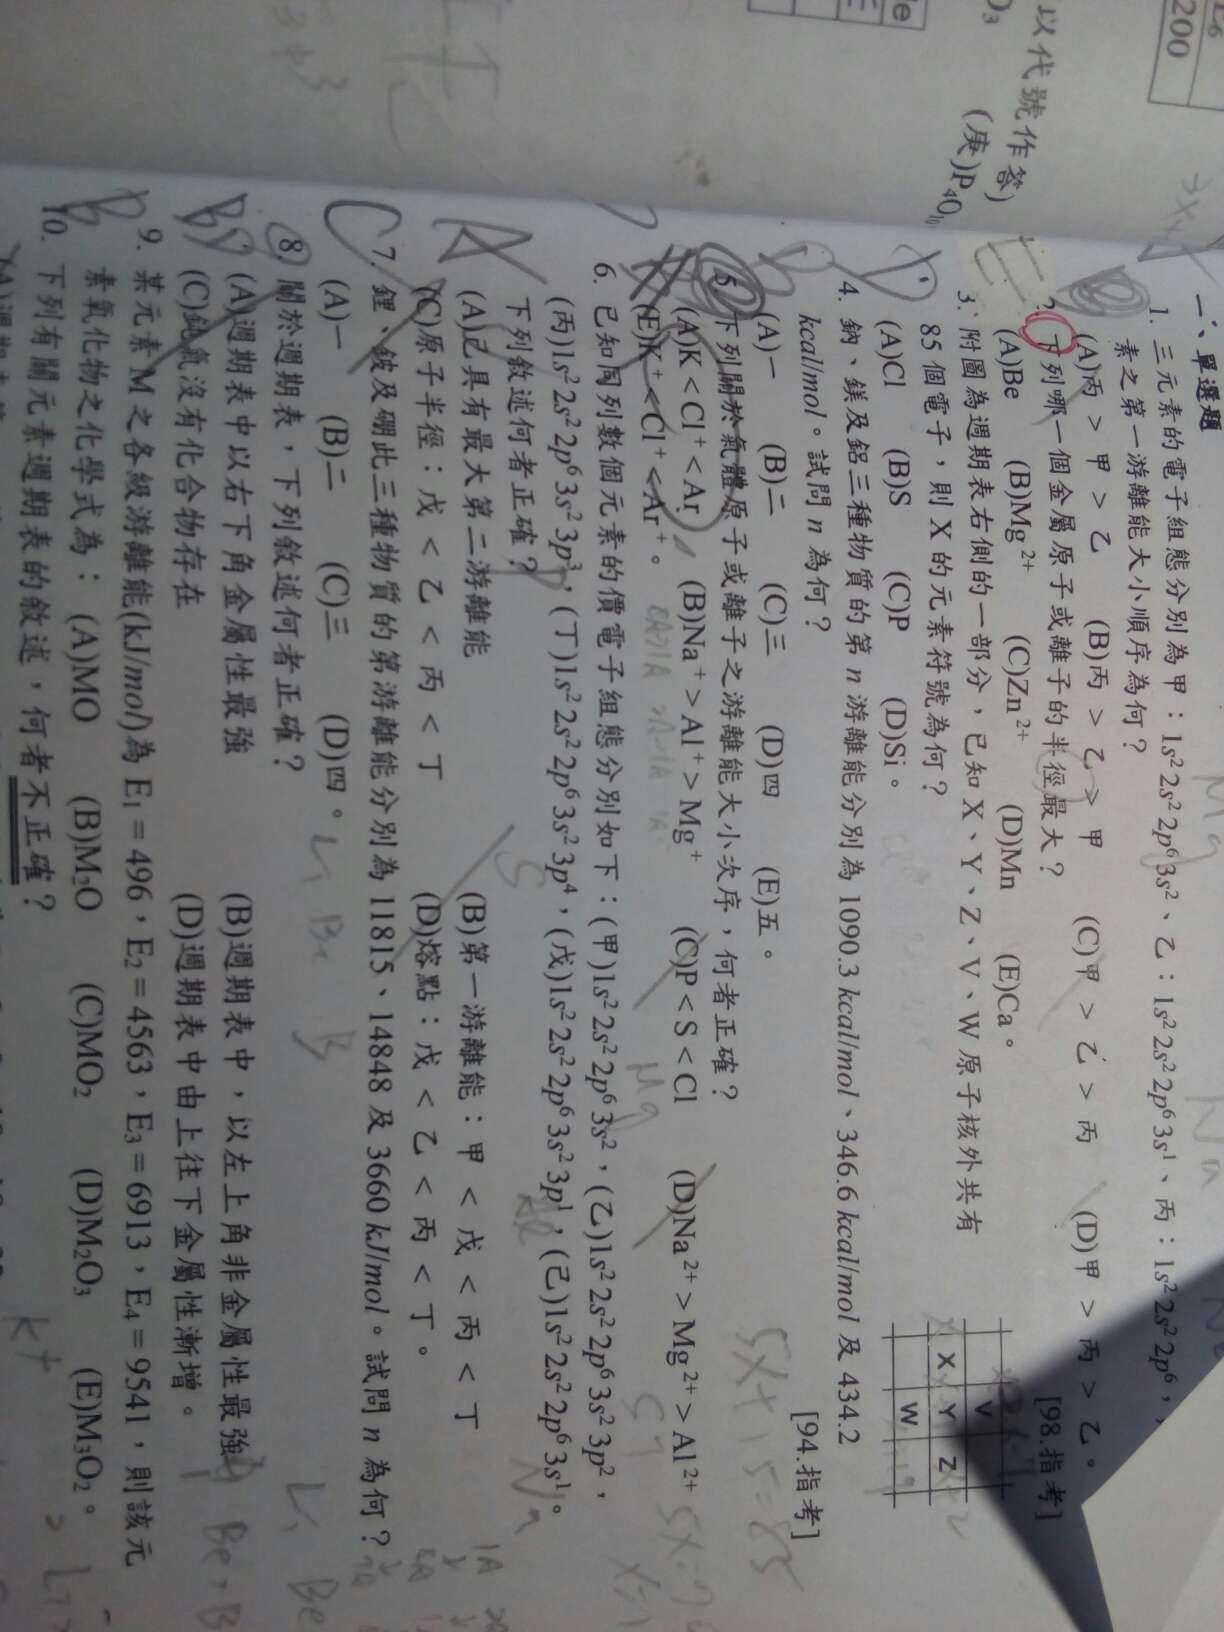 以代號作答)
(庚)P₄O₁₀
200
一、單選題
1. 三元素的電子組態分別為甲:1s²2s²2p⁶3s²、乙:1s²2s²2p⁶3s¹、丙:1s²2s²2p⁶,
素之第一游離能大小順序為何?
(A)丙 > 甲 > 乙 (B)丙 > 乙 > 甲 (C)甲 > 乙 > 丙 (D)甲 > 丙 > 乙。
2. 下列哪一個金屬原子或離子的半徑最大? [98.指考]
(A)Be (B)Mg²⁺ (C)Zn²⁺ (D)Mn (E)Ca。
3. 附圖為週期表右側的一部分,已知 X、Y、Z、V、W 原子核外共有
85 個電子,則 X 的元素符號為何?
(A)Cl (B)S (C)P (D)Si。
V
X Y Z
W
4. 鈉、鎂及鋁三種物質的第 n 游離能分別為 1090.3 kcal/mol、346.6 kcal/mol 及 434.2
kcal/mol。試問 n 為何? [94.指考]
(A)一 (B)二 (C)三 (D)四 (E)五。
5x+15=85
5. 下列關於氣體原子或離子之游離能大小次序,何者正確?
(A)K < Cl⁺ < Ar (B)Na⁺ > Al⁺ > Mg⁺ (C)P < S < Cl (D)Na²⁺ > Mg²⁺ > Al²⁺
(E)K⁺ < Cl⁺ < Ar⁺。
6. 已知同列數個元素的價電子組態分別如下:(甲)1s²2s²2p⁶3s²,(乙)1s²2s²2p⁶3s²3p²,
(丙)1s²2s²2p⁶3s²3p³,(丁)1s²2s²2p⁶3s²3p⁴,(戊)1s²2s²2p⁶3s²3p¹,(己)1s²2s²2p⁶3s¹。
下列敘述何者正確?
(A)己具有最大第二游離能 (B)第一游離能:甲 < 戊 < 丙 < 丁
(C)原子半徑:戊 < 乙 < 丙 < 丁 (D)熔點:戊 < 乙 < 丙 < 丁。
7. 鋰、鈹及硼此三種物質的第游離能分別為 11815、14848 及 3660 kJ/mol。試問 n 為何?
(A)一 (B)二 (C)三 (D)四。
Li Be B
8. 關於週期表,下列敘述何者正確?
(A)週期表中以右下角金屬性最強 (B)週期表中,以左上角非金屬性最強
(C)鈍氣沒有化合物存在 (D)週期表中由上往下金屬性漸增。
9. 某元素 M 之各級游離能(kJ/mol)為 E₁ = 496,E₂ = 4563,E₃ = 6913,E₄ = 9541,則該元
素氧化物之化學式為: (A)MO (B)M₂O (C)MO₂ (D)M₂O₃ (E)M₃O₂。
10. 下列有關元素週期表的敘述,何者不正確?